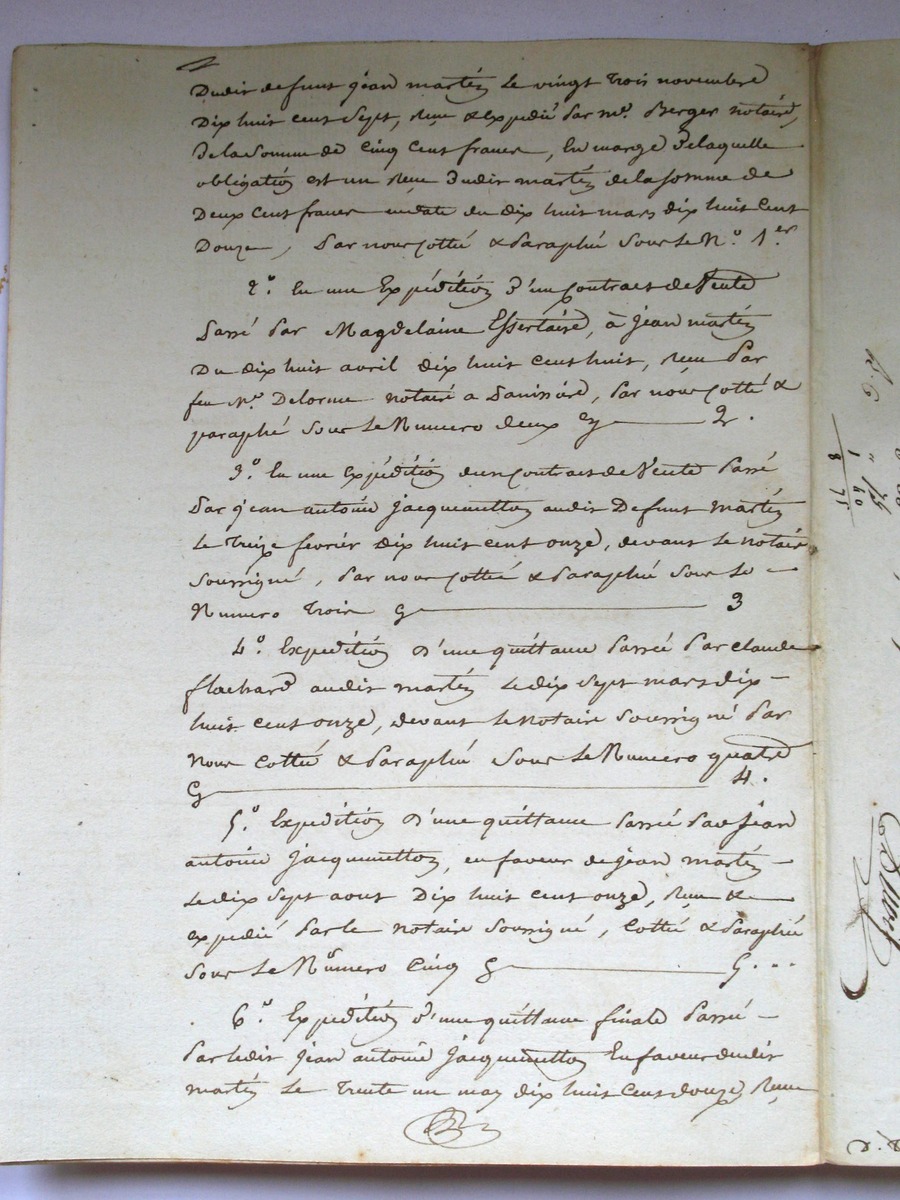 Dudit defunt jean martin Le vingt trois novembre
Dix huit cent Sept, Reçue & expedié Par me. Berger notaire,
De la Somme de Cinq Cent francs, En marge De laquelle
obligation est un Reçue Dudit martin de la Somme de
Deux Cent francs en date du dix huit mars dix huit Cent
Douze, Par nous Cotté & Paraphé Sous le No. 1.er
2.o En une Expédition D'un Contract de Vente
Passé Par Magdelaine Essertaire, à jean martin
Du dix huit avril dix huit cent huit, Reçu Par
feu Me. Delorme notaire a, Par nous Cotté &
paraphé Sous Le Numero deux 2.
3.o En une expédition d'un Contract de Vente Passé
Par jean antoine jacquemetton audit Defunt martin
Le Treize fevrier dix huit cent onze, devant Le notaire
Soussigné, Par nous Cotté & Paraphé Sous Le
Numero Trois 3
4.o Expédition d'une quittance Passée Par Claude
flachard audit martin Le dix Sept mars dix
huit cent onze, devant Le notaire Soussigné Par
Nous Cotté & Paraphé Sous Le Numero quatre
4.
5.o Expédition d'une quittance Passée Par Jean
antoine jacquemetton, en faveur de jean martin
Le dix Sept aout Dix huit cent onze, Reçue &
expedié Par le notaire Soussigné, Cotté & Paraphé
Sous Le Numero Cinq 5...
6.o Expédition d'une quittance finale Passée
Par ledit jean antoine jacquemetton En faveur dudit
martin Le Trente un may dix huit Cent douze, Reçue